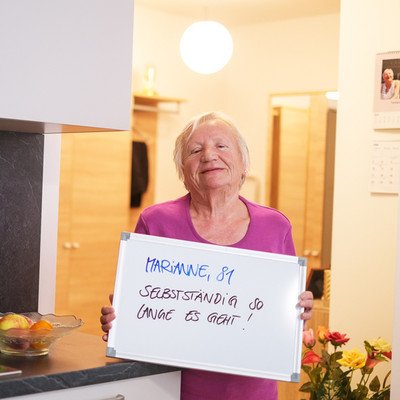 MARIANNE, 81
SELBSTSTÄNDIG SO
LANGE ES GEHT!